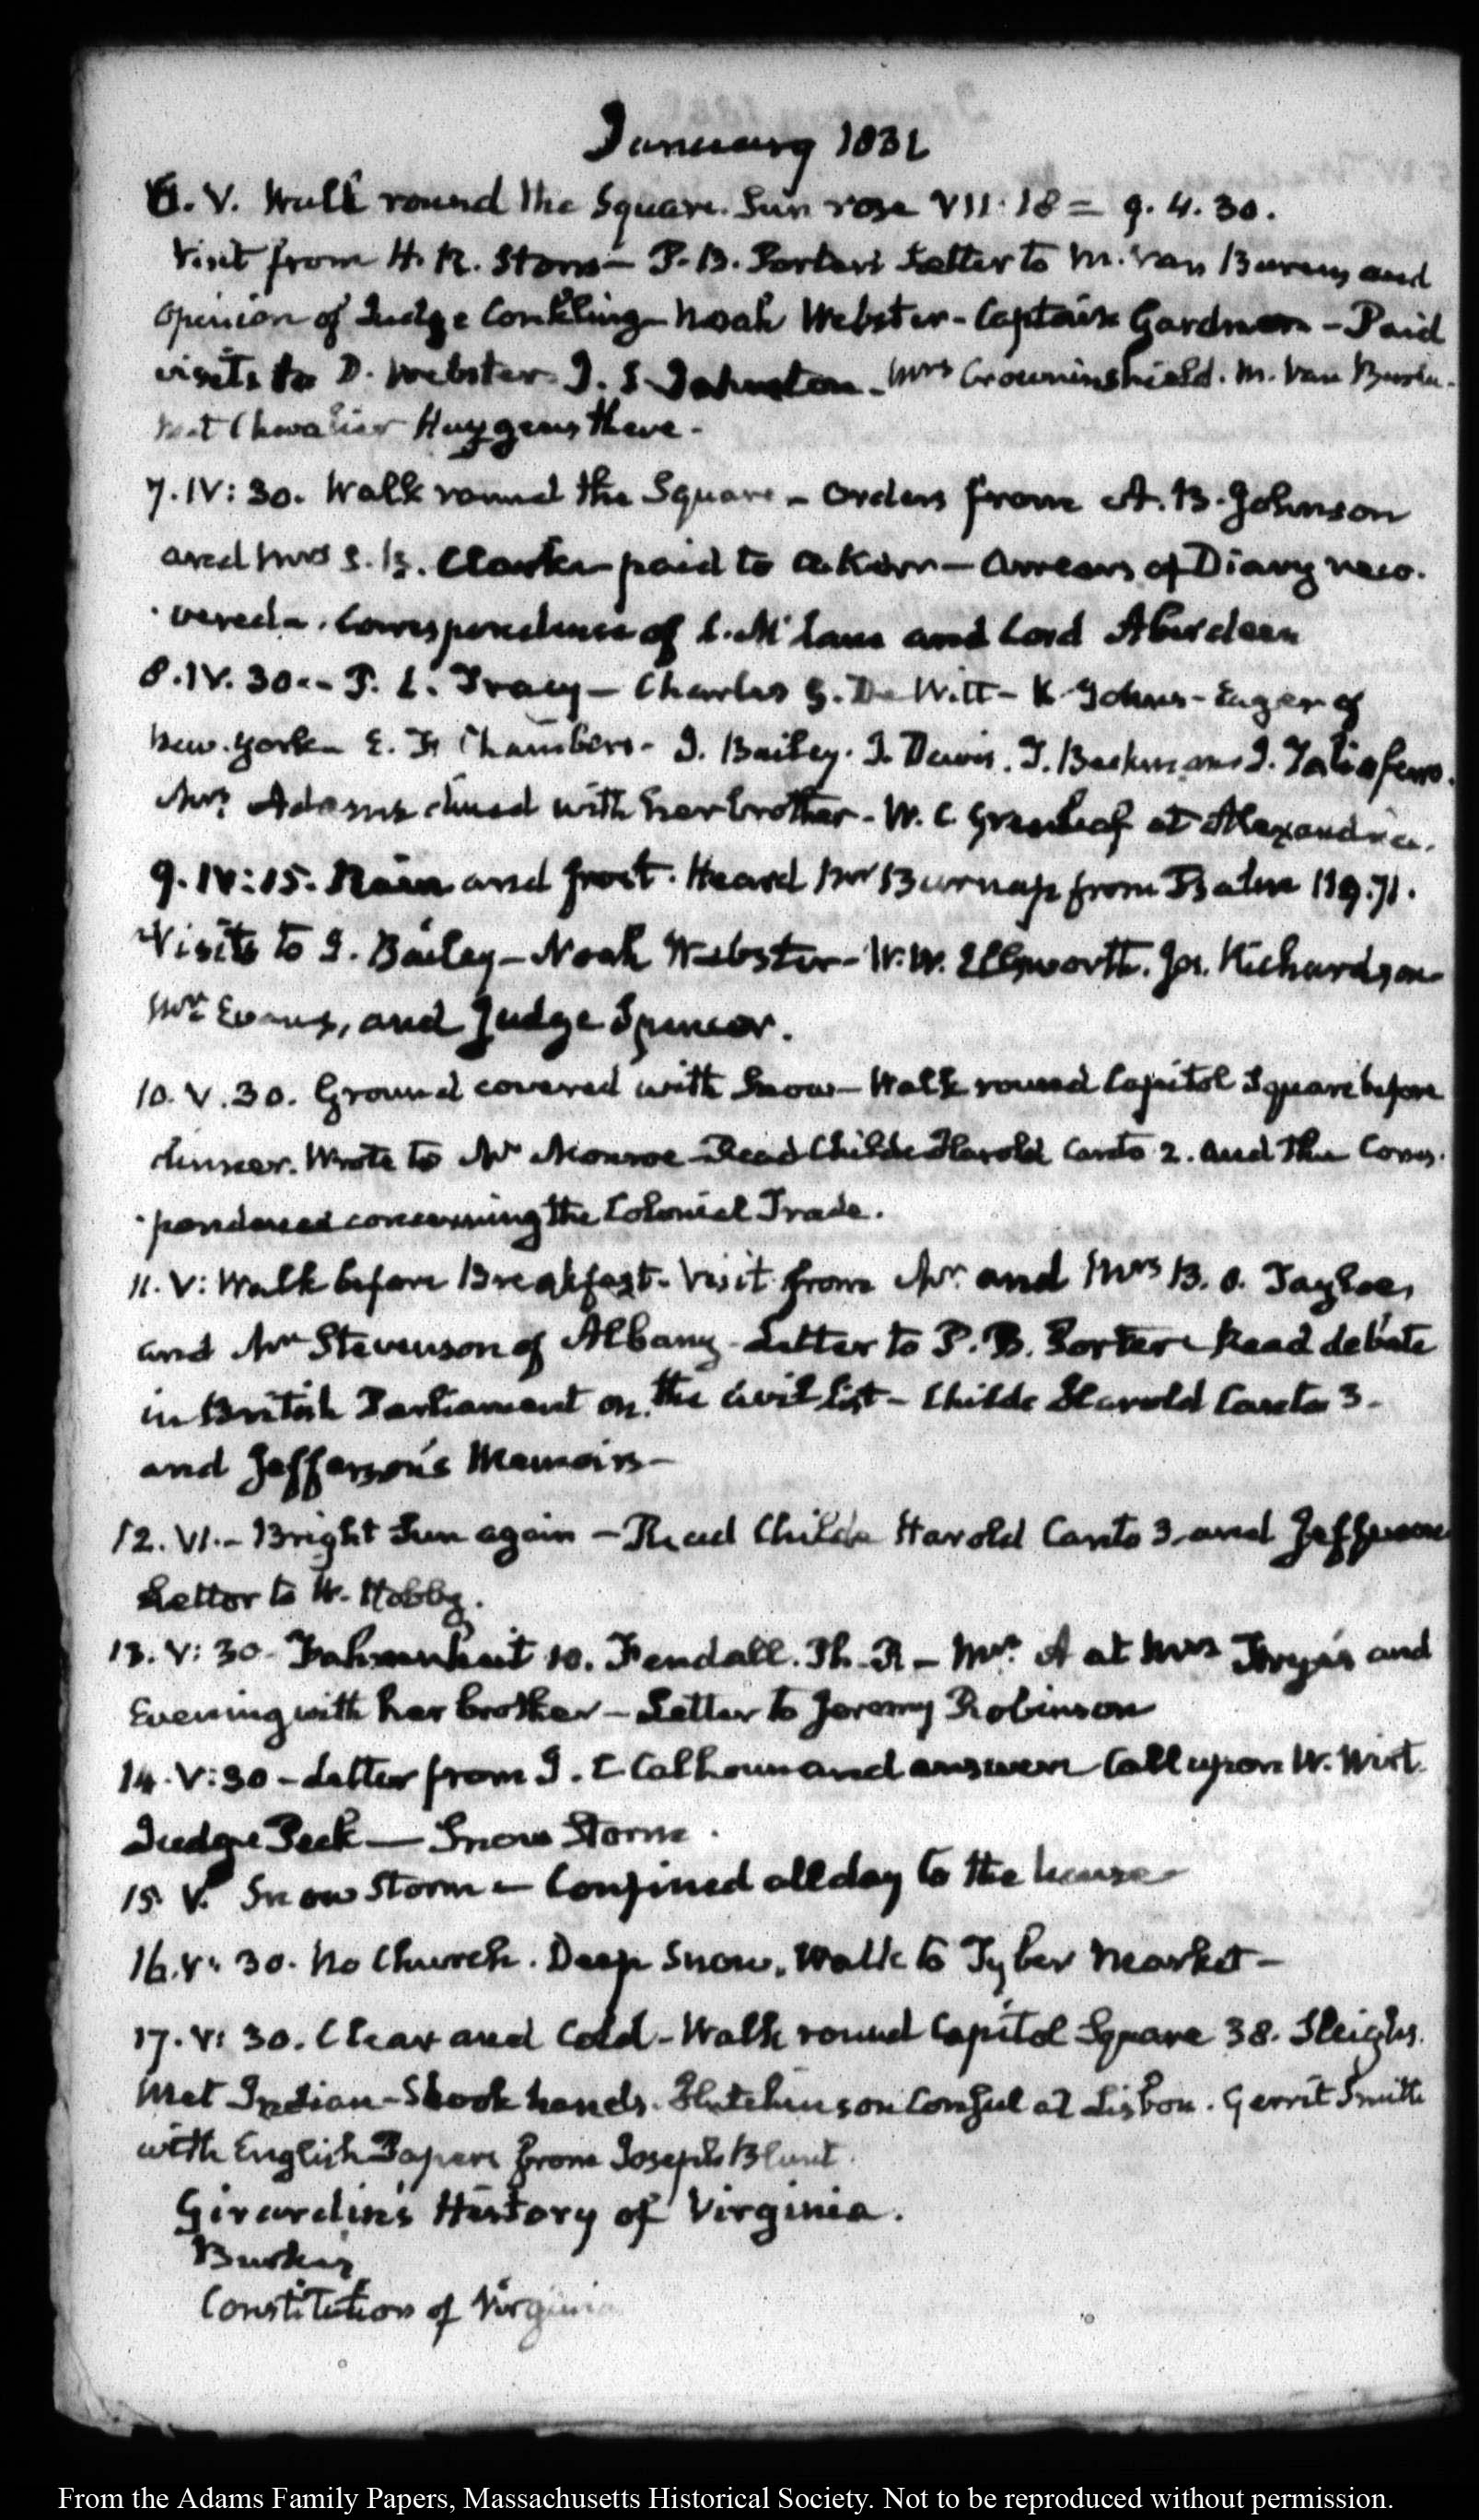 January 1831
6. V. Walk round the Square. Sun rose VII. 18 = 9. 4. 30.
Visit from H. R. Storrs — P. B. Porter's Letter to M. Van Buren, and
opinion of Judge Conkling — Noah Webster — Captain Gardner — Paid
visits to D. Webster. J. S. Johnston — Mrs Crowninshield. M. Van Buren.
met Chevalier Huygens there —
7. IV: 30. Walk round the Square — orders from A. B. Johnson
and Mrs S. B. Clarke paid to — Arrears of Diary reco-
-vered — Correspondence of L. McLane and Lord Aberdeen
8. IV. 30 — P. L. Tracy — Charles G. De Witt — K. Johns — Eager of
New-York — E. F. Chambers — J. Bailey. J. Davis. T. Beekman J. Taliaferro.
Mrs Adams dined with her brother — W. C. Greenleaf at Alexandria.
9. IV: 15. Rain and frost. Heard Mr Burnap from Psalm 119. 71.
Visits to J. Bailey — Noah Webster — W. W. Ellsworth. Jos. Richardson
Mr Evans, and Judge Spencer.
10. V. 30. Ground covered with Snow — Walk round Capitol Square before
dinner. Wrote to Mr Monroe — Read Childe Harold Canto 2. and the Corres-
-pondence concerning the Colonial Trade.
11. V: Walk before Breakfast. Visit from Mr. and Mrs B. O. Tayloe,
and Mr Stevenson of Albany — Letter to P. B. Porter — Read debate
in British Parliament on the Civil list — Childe Harold Canto 3 —
and Jefferson's Memoirs —
12. VI. — Bright Sun again — Read Childe Harold Canto 3 and Jefferson
Letter to W. Hobby.
13. V: 30 — Fahrenheit 10. Fendall. Ph. R — Mrs. A at Mrs Frye's and
Evening with her brother — Letter to Jeremy Robinson
14. V: 30 — Letter from J. C Calhoun and answer — Call upon W. Wirt.
Judge Peck — Snow Storm.
15. V. Snow Storm — Confined all day to the house —
16. V: 30. No Church. Deep Snow. Walk to Tyber Market —
17. V: 30. Clear and Cold — Walk round Capitol Square 38. Sleighs.
Met Indian — Shook hands. Hutchinson Consul at Lisbon. Gerrit Smith
with English Papers from Joseph Blunt.
Girardin's History of Virginia.
Burke's
Constitution of Virginia
From the Adams Family Papers, Massachusetts Historical Society. Not to be reproduced without permission.